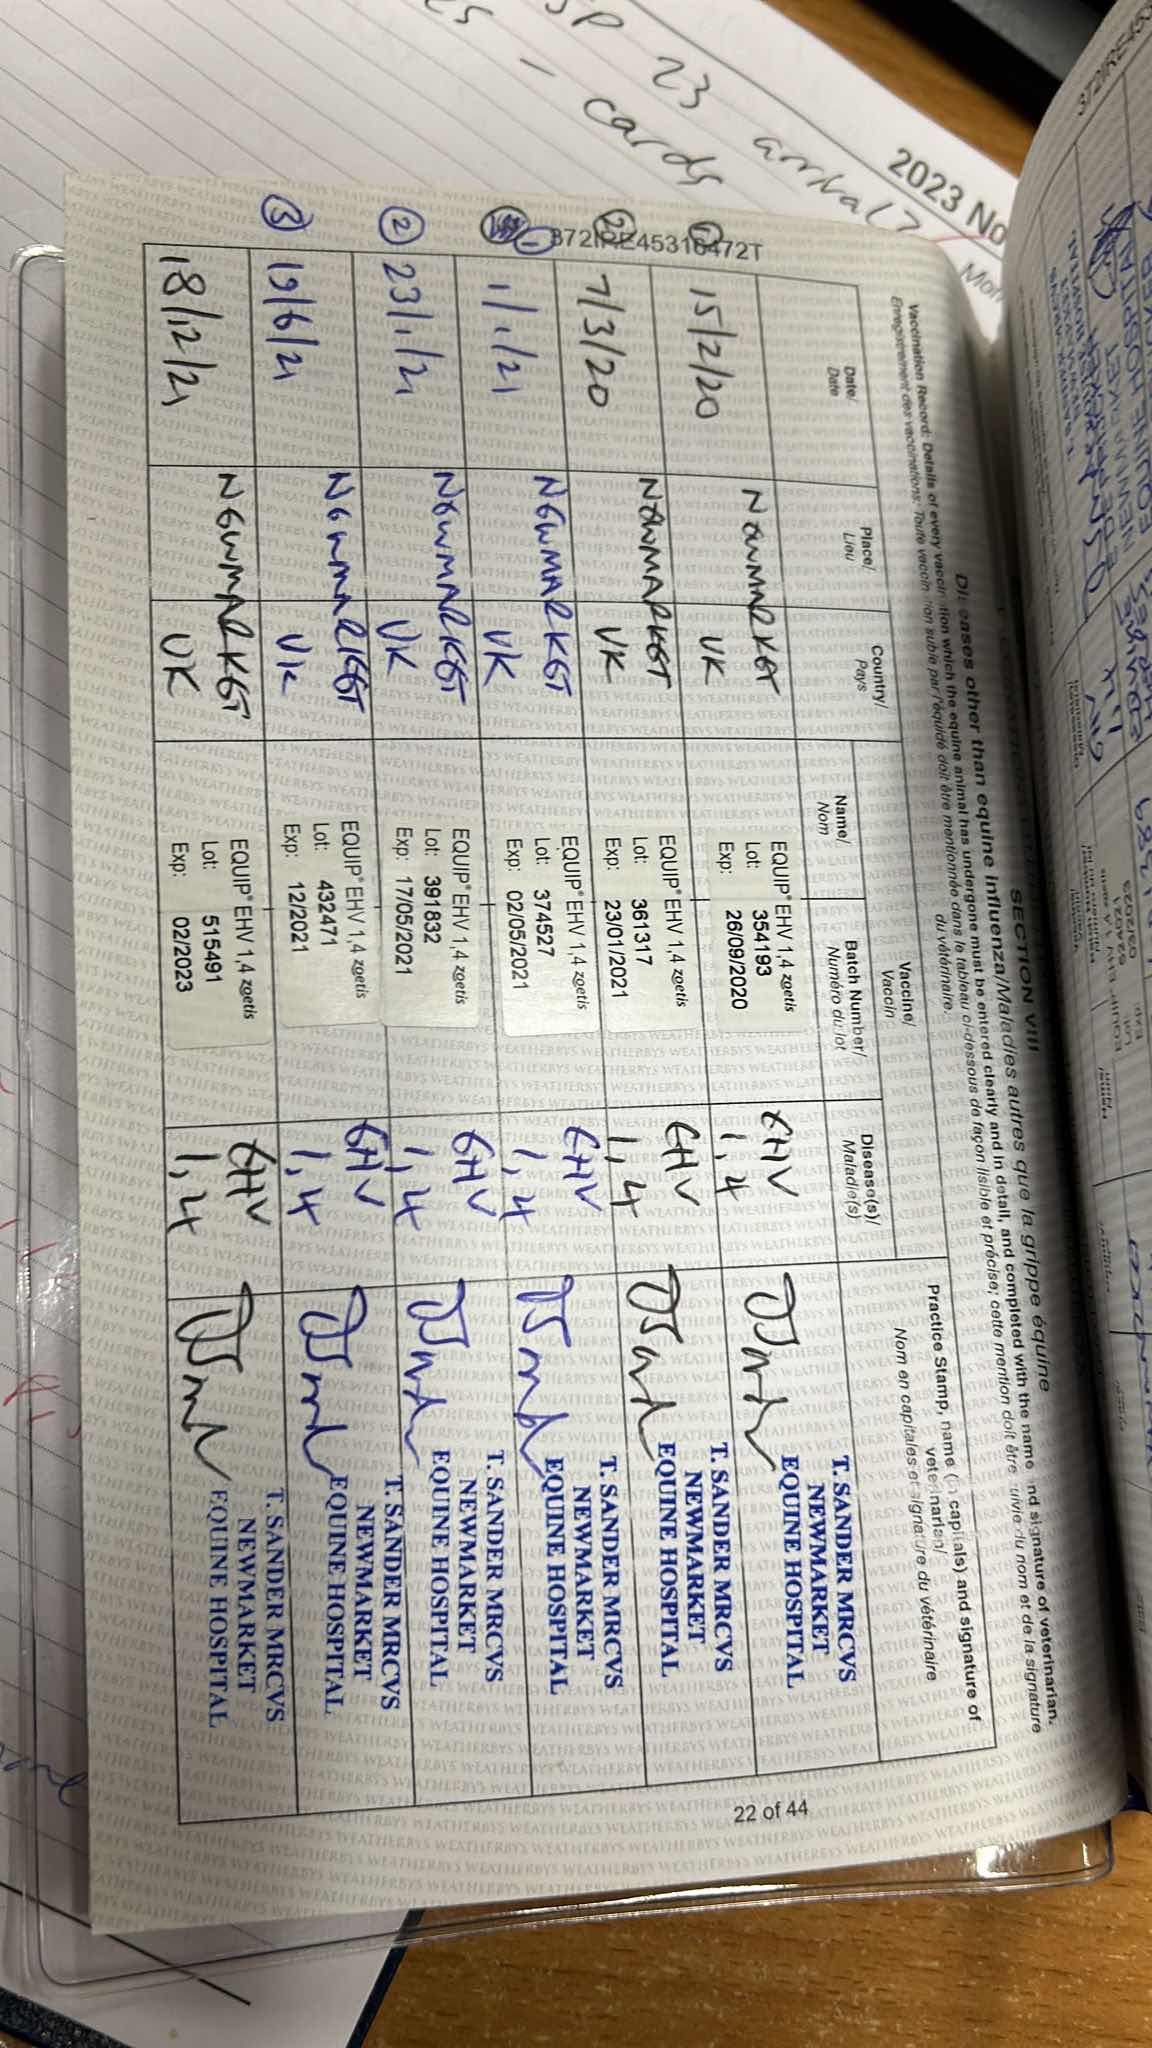 372IRE45316472T
SECTION VIII
Diseases other than equine influenza/Maladies autres que la grippe équine
Vaccination Record: Details of every vaccination which the equine animal has undergone must be entered clearly and in detail, and completed with the name and signature of veterinarian.
Enregistrement des vaccinations: Toute vaccination subie par l'équidé doit être mentionnée dans le tableau ci-dessous de façon lisible et précise; cette mention doit être suivie du nom et de la signature
du vétérinaire.
Date/ Date
Place/ Lieu
Country/ Pays
Vaccine/ Vaccin
Name/ Nom
Batch Number/ Numéro du lot
Disease(s)/ Maladie(s)
Practice Stamp, name (in capitals) and signature of
veterinarian/
Nom en capitales et signature du vétérinaire
15/2/20
NEWMARKET
UK
EQUIP® EHV 1,4 zoetis
Lot: 354193
Exp: 26/09/2020
EHV
1,4
T. SANDER MRCVS
NEWMARKET
EQUINE HOSPITAL
②
7/3/20
NEWMARKET
UK
EQUIP® EHV 1,4 zoetis
Lot: 361317
Exp: 23/01/2021
EHV
1,4
T. SANDER MRCVS
NEWMARKET
EQUINE HOSPITAL
①
1/1/21
NEWMARKET
UK
EQUIP® EHV 1,4 zoetis
Lot: 374527
Exp: 02/05/2021
EHV
1,4
T. SANDER MRCVS
NEWMARKET
EQUINE HOSPITAL
②
23/1/21
NEWMARKET
UK
EQUIP® EHV 1,4 zoetis
Lot: 391832
Exp: 17/05/2021
EHV
1,4
T. SANDER MRCVS
NEWMARKET
EQUINE HOSPITAL
③
19/6/21
NEWMARKET
UK
EQUIP® EHV 1,4 zoetis
Lot: 432471
Exp: 12/2021
EHV
1,4
T. SANDER MRCVS
NEWMARKET
EQUINE HOSPITAL
18/12/21
NEWMARKET
UK
EQUIP® EHV 1,4 zoetis
Lot: 515491
Exp: 02/2023
EHV
1,4
T. SANDER MRCVS
NEWMARKET
EQUINE HOSPITAL
22 of 44
2023 No
23 arrival
- cards